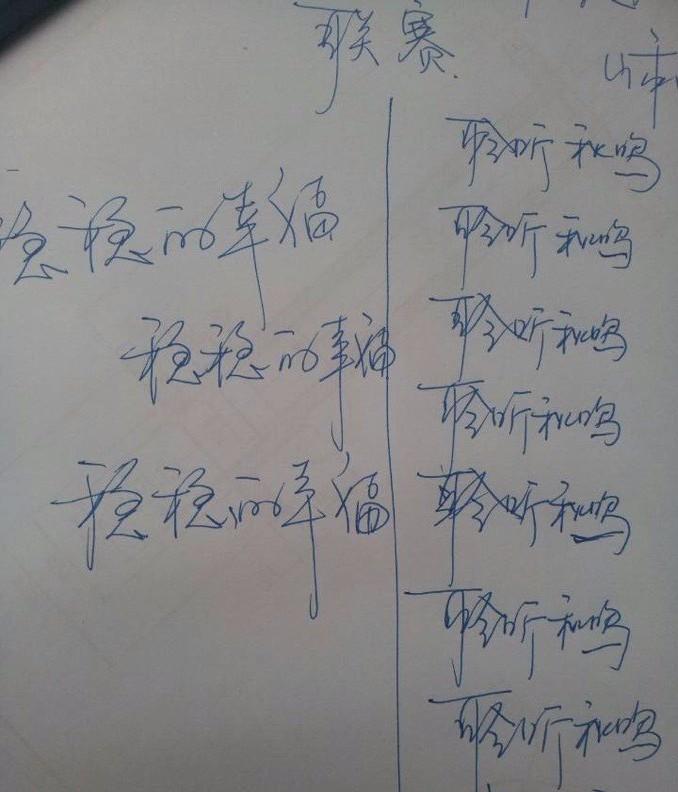 联赛
稳稳的幸福
稳稳的幸福
稳稳的幸福
聆听秋鸣
聆听秋鸣
聆听秋鸣
聆听秋鸣
聆听秋鸣
聆听秋鸣
聆听秋鸣